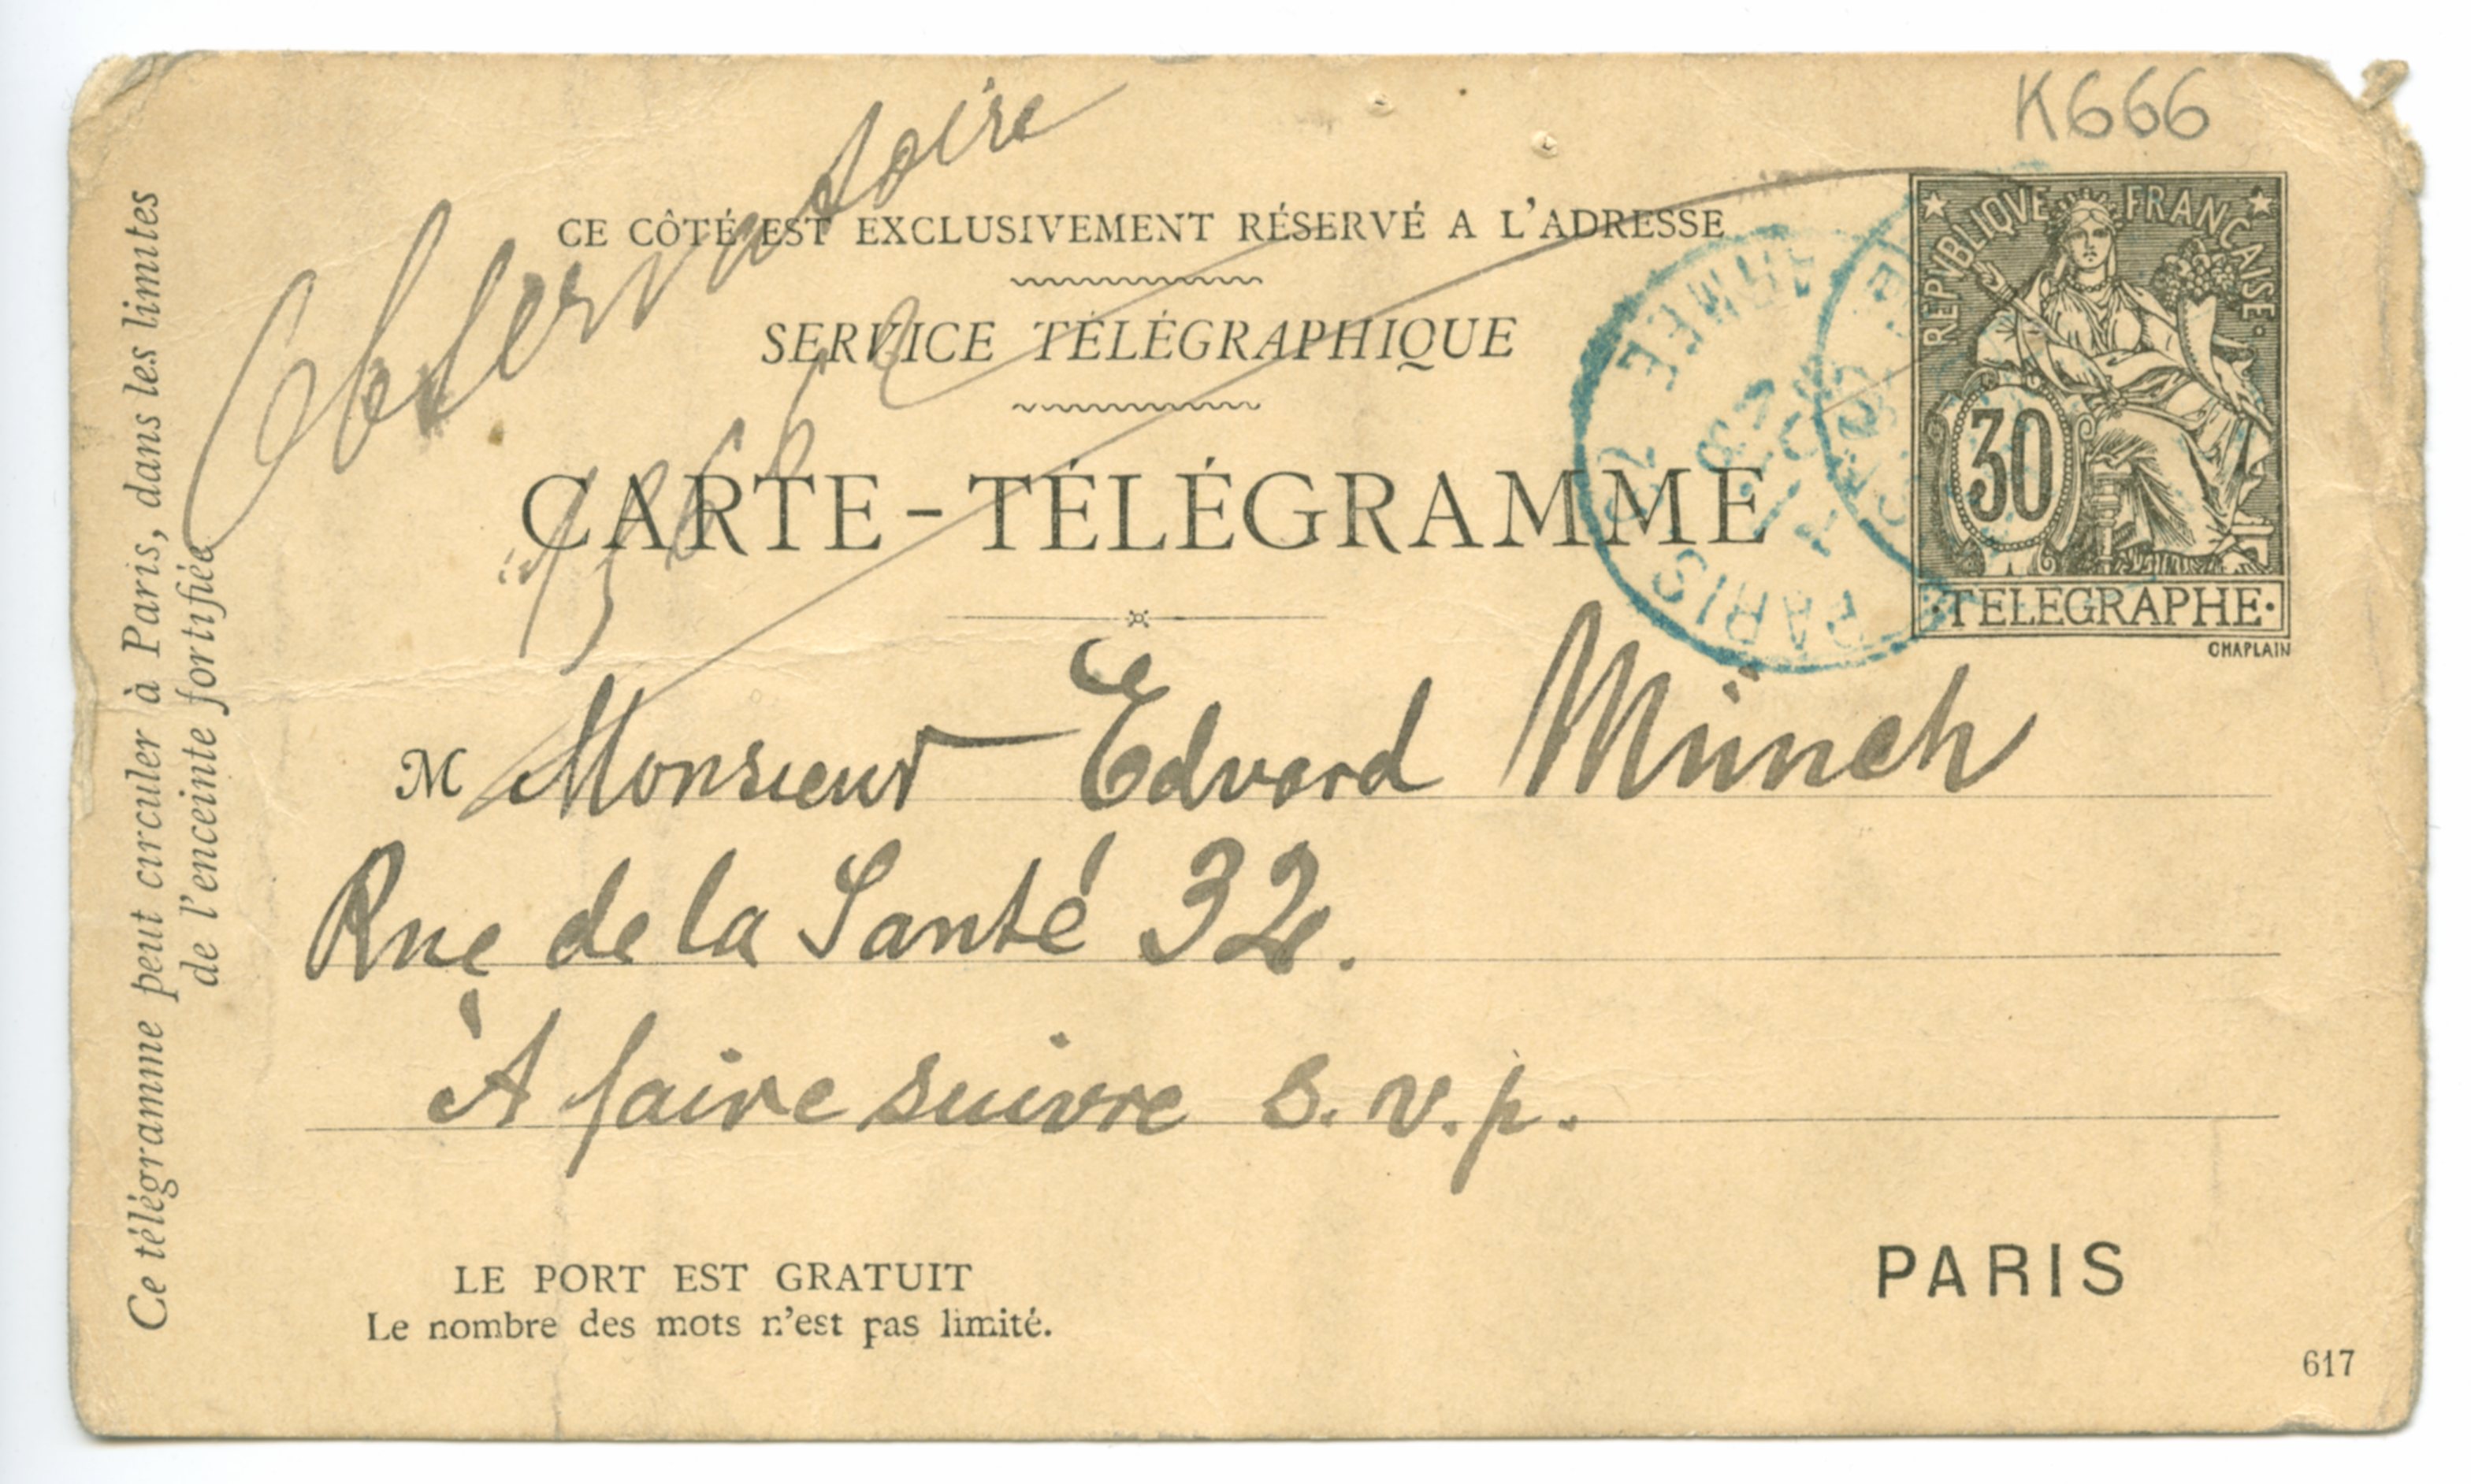 K666
Observatoire
CE CÔTÉ EST EXCLUSIVEMENT RÉSERVÉ A L'ADRESSE
SERVICE TÉLÉGRAPHIQUE
CARTE-TÉLÉGRAMME
REPVBLIQVE FRANÇAISE
30
·TELEGRAPHE·
CHAPLAIN
PARIS
ARMEE
M Monsieur Edvard Münch
Rue de la Santé 32.
À faire suivre s. v. p.
LE PORT EST GRATUIT
Le nombre des mots n'est pas limité.
PARIS
617
Ce télégramme peut circuler à Paris, dans les limites
de l'enceinte fortifiée